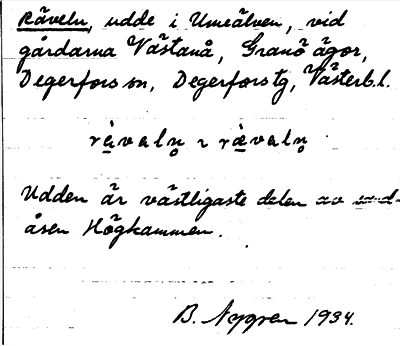 Räveln, udde i Umeälven, vid
gårdarna Västanå, Granö ägor,
Degerfors sn, Degerforstg, Västerb.l.
rävaln̥ ~ rævaln̥
Udden är västligaste delen av sand-
åsen Högkammen.
B. Nygren 1934.